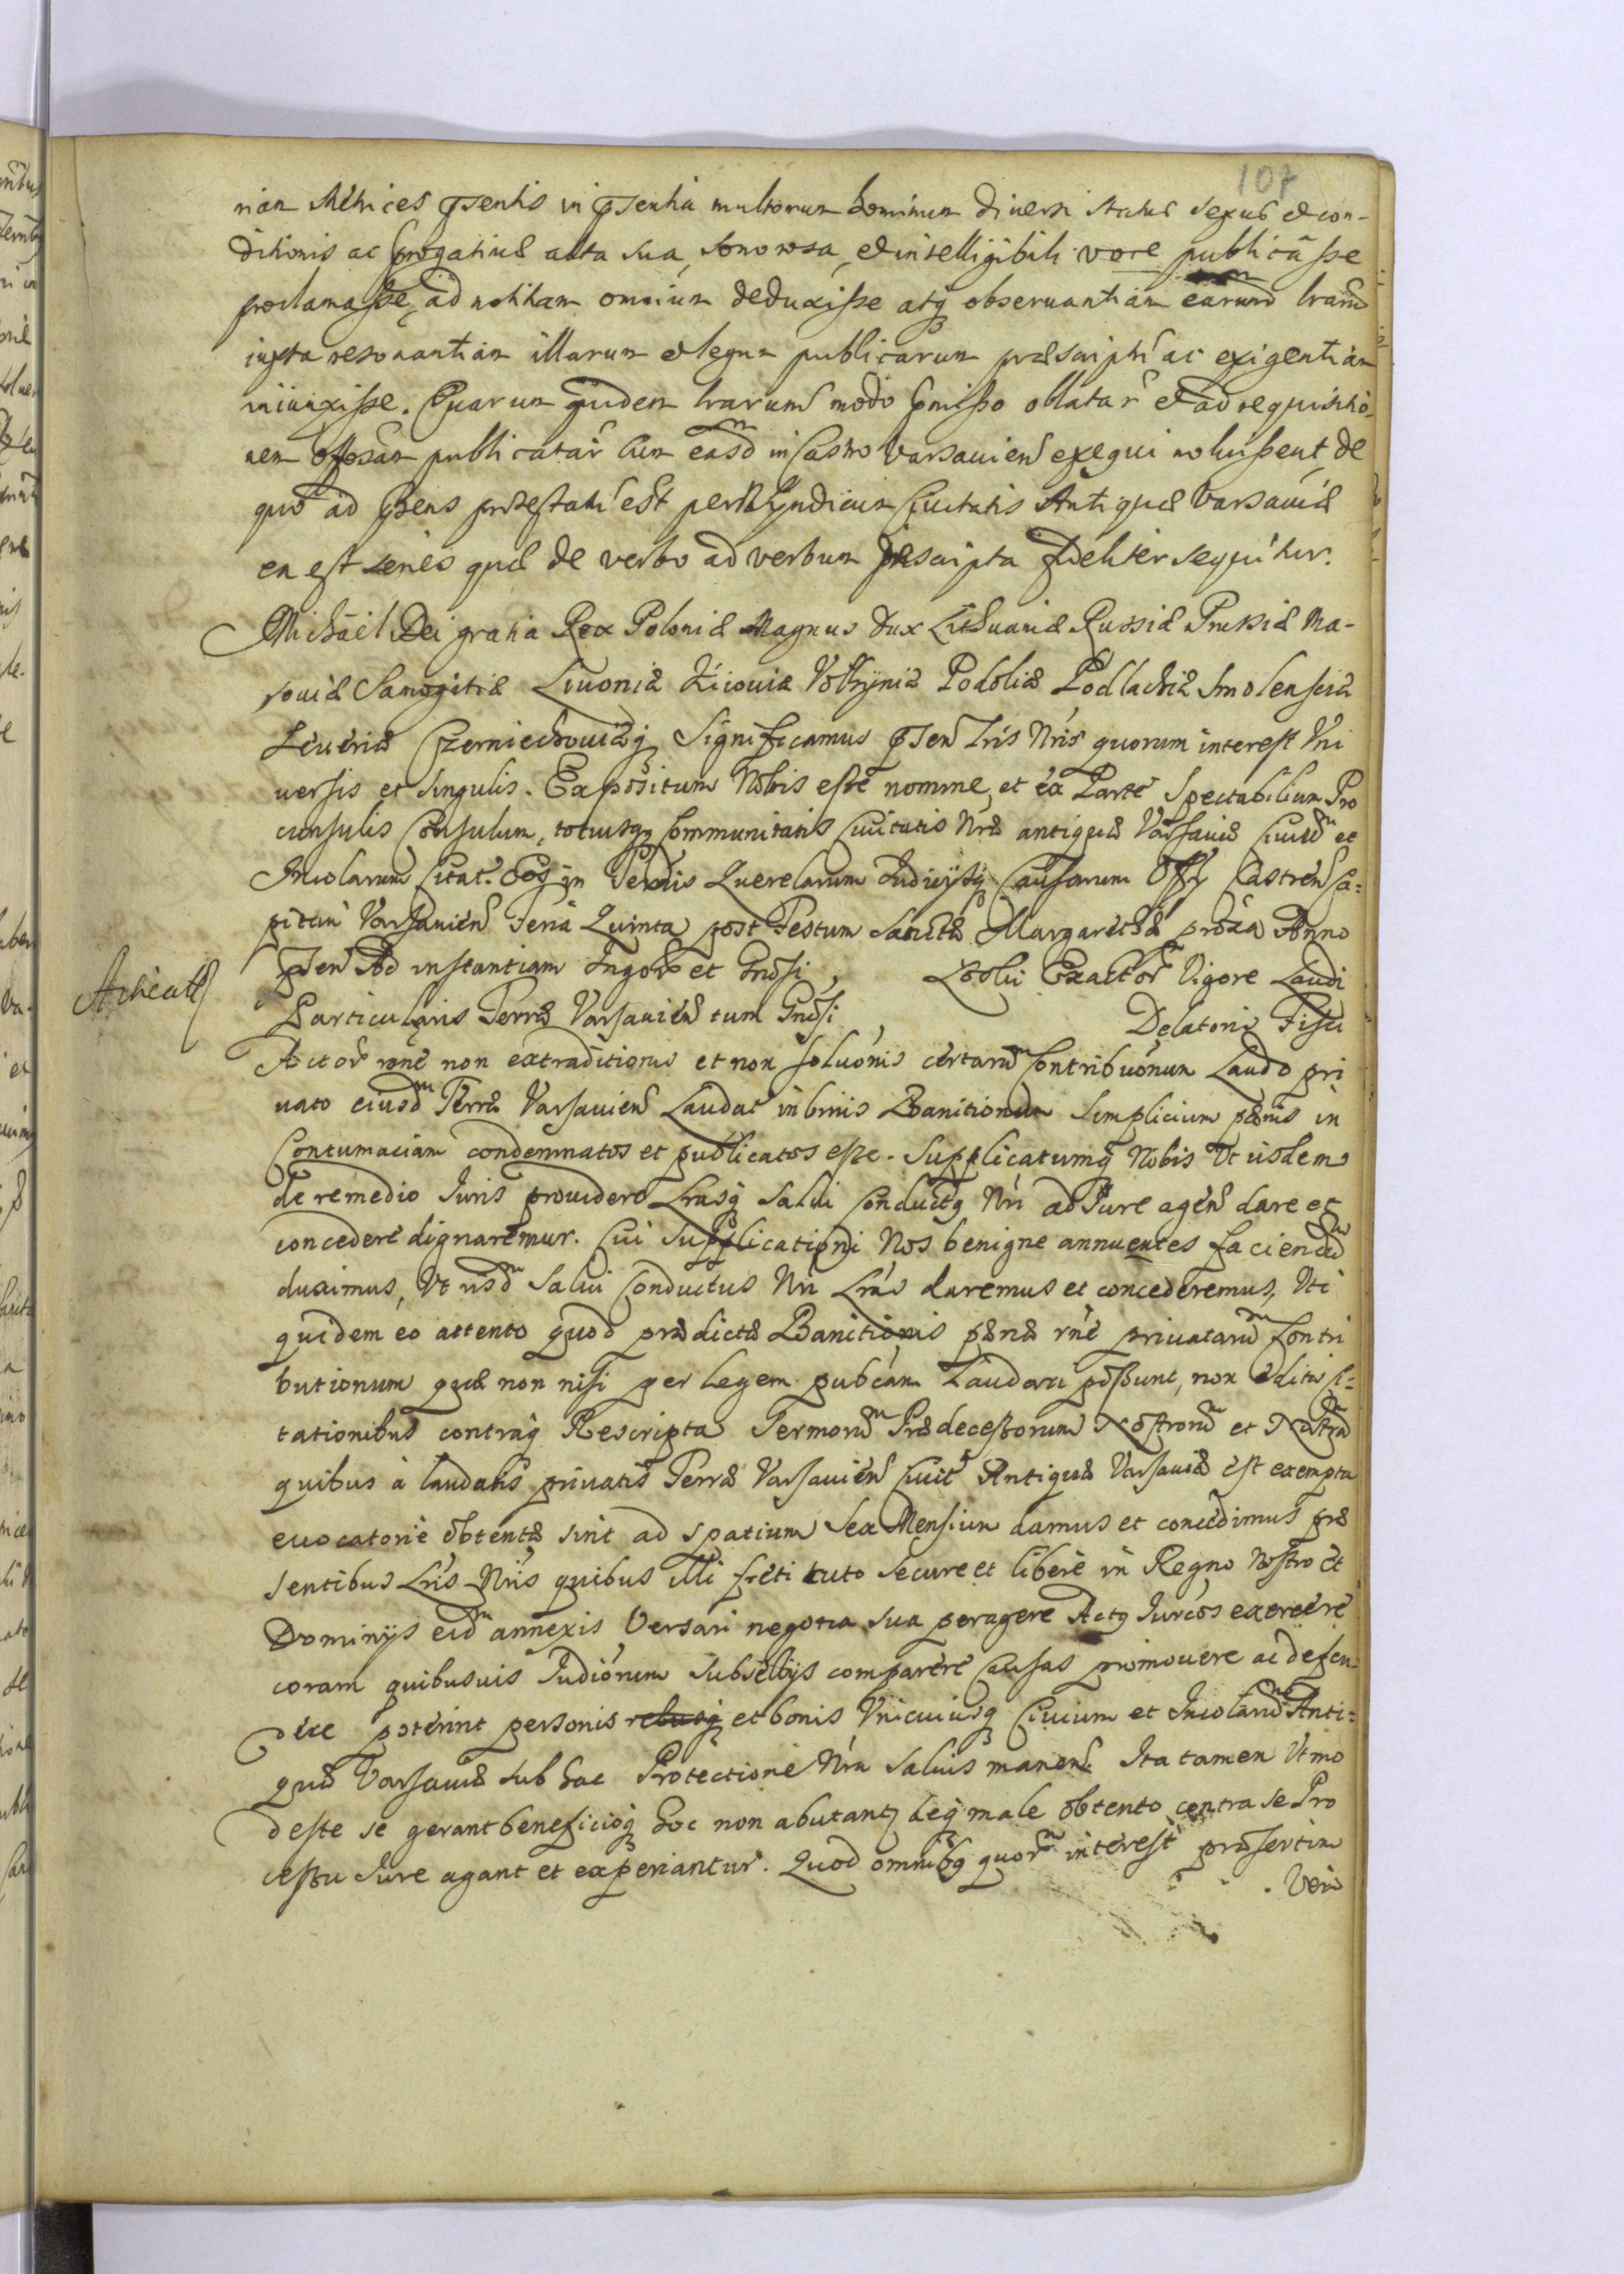 107
nian Metrices psentis in psentia multorum hominum diversi status sexus et con-
ditionis ac progativæ alta sua, sonorosa, et intelligibili voce publicasse
proclamasse, ad notitiam omnium deduxisse atq observantiam earund lrarū
iuxta resonantiam illarum et legum publicarum præscripti ac exigentiam
iniunxisse. Quarum quidem lrarum modo pmisso oblatar et ad requisitio-
nem publicatar cum easd in Castro Varsavien exequi noluissent, de
quo ad pñens protestatū est per Syndicum Civitatis Antiquæ Varsaviæ
en est series quæ de verbo ad verbum inscripta fideliter sequitur.
Michael Dei gratia Rex Poloniæ Magnus Dux Lithuaniæ Russiæ Prussiæ Ma-
soviæ Samogitiæ Livoniæ Kijoviæ Volhyniæ Podoliæ Podlachiæ Smolensciæ
Severiæ Czerniechoviæq Significamus psen Lris Nris quorum interest Vni
uersis et singulis. Expositum Nobis esse nomine, et ex Parte Spectabilium Pro
consulis Consulum, totiusq Communitatis Civitatis Nræ antiquæ Varsaviæ Civiū et
Incolarum Citat. Eos in Termis Querelarum Iudicijsq Causarum Offij Castren Ca=
pitan Varsavien Feria Quinta post Festum Sanctæ Margarethæ proxa Anno
psen Ad instantiam Ingor et Gnosi, Exactor Vigore Laudi
Particularis Terræ Varsavien tum Gnosi, Delatoris Fisci
Actor rone non extraditionis et non soluonis certarū Contribuonum Laudo pri
uato eiusd Terræ Varsavien Laudat in binis Banitionum simplicium pænis in
Contumaciam condemnatos et publicatos esse. Supplicatumq Nobis Vt iisdem
de remedio Iuris providere Lrasq Salui Conductq Nri ad Iure agen dare et
concedere dignaremur. Cui Supplicationi Nos benigne annuentes faciend
duximus, Vt iisd Salui Conductus Nri Lras daremus et concederemus, Vti
quidem eo attento quod prædictæ Banitionis pænæ rne privatarū Contri
butionum quæ non nisi per legem pubcam Laudari possunt, non editis Ci=
tationibus contraq Rescripta Sermorū Prædecessorum Nostrorū et Nostra
quibus à laudatis privatis Terræ Varsavien Civit Antiquæ Varsaviæ est exempta
evocatorie obtentæ sint ad spatium Sex Mensium damus et concedimus præ
sentibus Lris Nris quibus illi freti tuto secure et libere in Regno Nostro et
Dominijs eid annexis Versari negotia sua peragere Actq Iurcos exercere
coram quibusvis Iudiorum Subsellijs comparere Causas promovere ac defen=
dere poterint personis rebusq et bonis Vnicuiusq Civium et Incolarū Anti=
quæ Varsaviæ sub hac Protectione Nra Saluis manen. Ita tamen Vt mo
deste se gerant beneficioq hoc non abutant, seq male obtento contra se Pro
cessu Iure agant et experiantur. Quod omnibq quor interest præsertim
. Vero